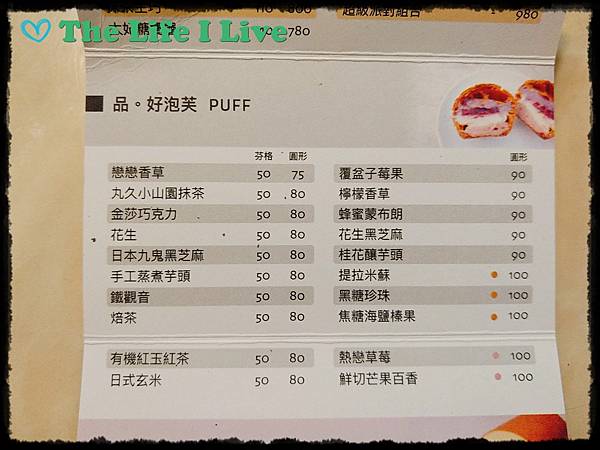 The Life I Live
780
超級派對組合
980
品。好泡芙 PUFF
芬格 圓形
戀戀香草 50 75
丸久小山園抹茶 50 80
金莎巧克力 50 80
花生 50 80
日本九鬼黑芝麻 50 80
手工蒸煮芋頭 50 80
鐵觀音 50 80
焙茶 50 80
有機紅玉紅茶 50 80
日式玄米 50 80
圓形
覆盆子莓果 90
檸檬香草 90
蜂蜜蒙布朗 90
花生黑芝麻 90
桂花釀芋頭 90
提拉米蘇 100
黑糖珍珠 100
焦糖海鹽榛果 100
熱戀草莓 100
鮮切芒果百香 100